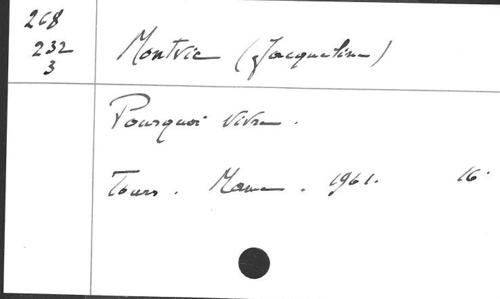 268
232
3
Montvic (Jacqueline)
Pourquoi vivre.
Tours. Mame. 1961. 16°